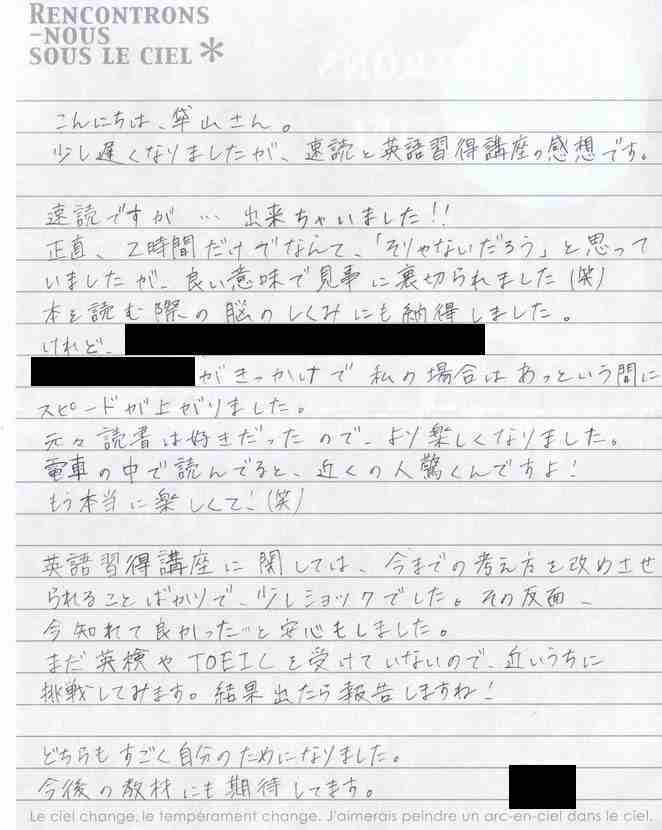 RENCONTRONS
-NOUS
SOUS LE CIEL*
こんにちは、袋山さん。
少し遅くなりましたが、速読と英語習得講座の感想です。
速読ですが… 出来ちゃいました!!
正直、2時間だけでなんて、「そりゃないだろう」と思って
いましたが、良い意味で見事に裏切られました(笑)
本を読む際の脳のしくみにも納得しました。
けれど、
がきっかけで 私の場合はあっという間に
スピードが上がりました。
元々読書は好きだったので、より楽しくなりました。
電車の中で読んでると、近くの人驚くんですよ!
もう本当に楽しくて!(笑)
英語習得講座に関しては、今までの考え方を改めさせ
られることばかりで、少しショックでした。その反面、
今知れて良かった…と安心もしました。
まだ英検やTOEICを受けていないので、近いうちに
挑戦してみます。結果出たら報告しますね!
どちらもすごく自分のためになりました。
今後の教材にも期待してます。
Le ciel change, le tempérament change. J'aimerais peindre un arc-en-ciel dans le ciel.